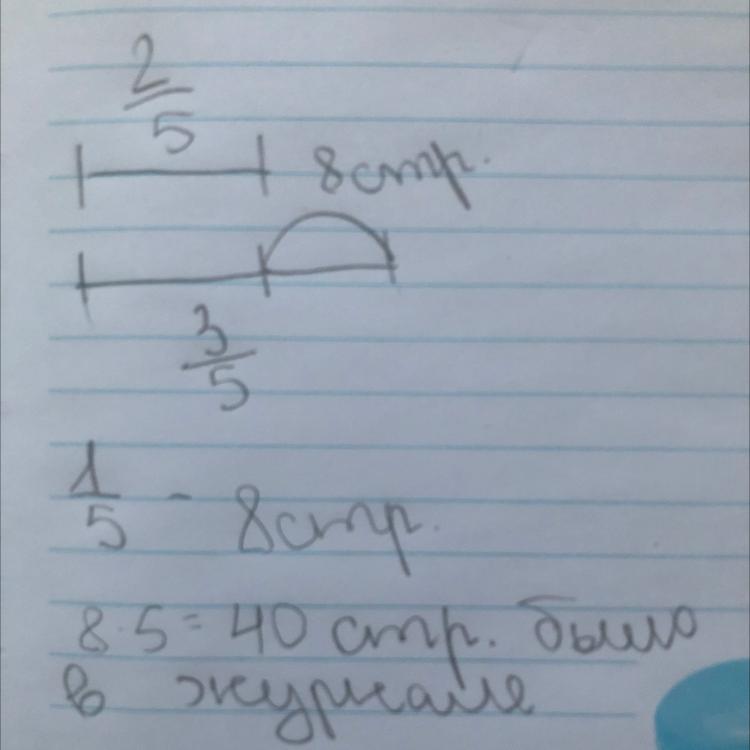 2/5
8 стр.
3/5
1/5 - 8 стр.
8·5=40 стр. было
в журнале